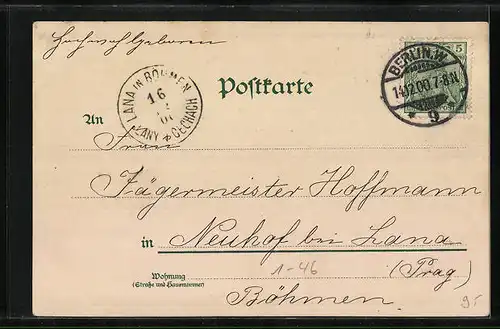 Hochwohlgeboren
BERLIN.W.
5
14.12.00.7-8N.
* 9
LANA IN BÖHMEN
16
LANY ČECHÁCH
Postkarte
An Frau
Jägermeister Hoffmann
in Neuhof bei Lana
1-46
(Prag)
Wohnung
(Straße und Hausnummer)
Böhmen.
95